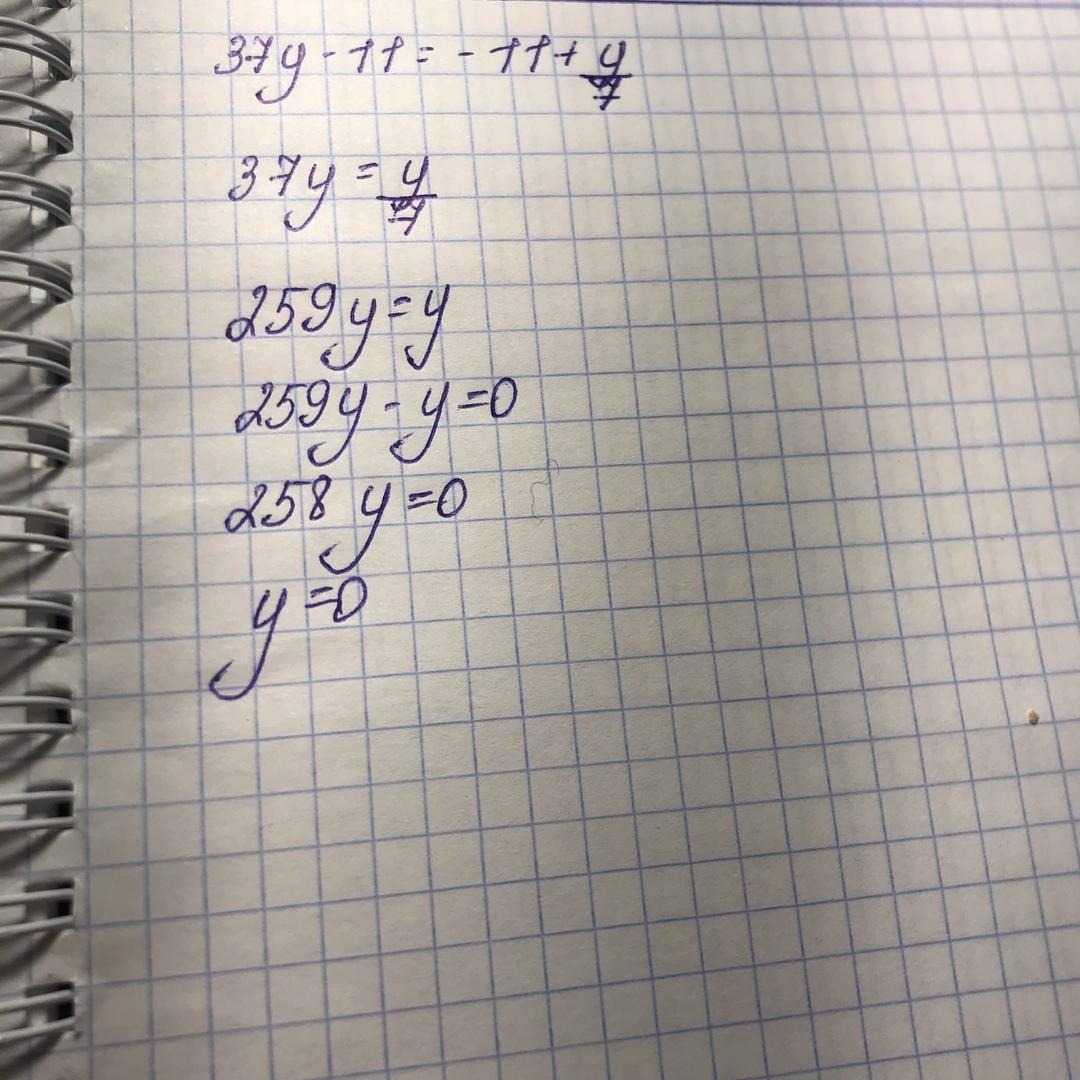 37y - 11 = - 11 + y/7
37y = y/7
259y = y
259y - y = 0
258y = 0
y = 0